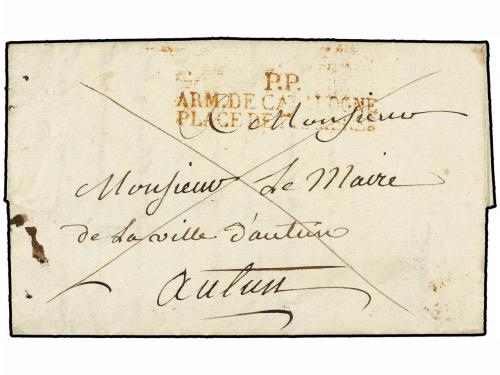 P.P.
ARM. DE CATALOGNE
PLACE DE
A Monsieur
Monsieur Le Maire
de la ville d'autun
autun